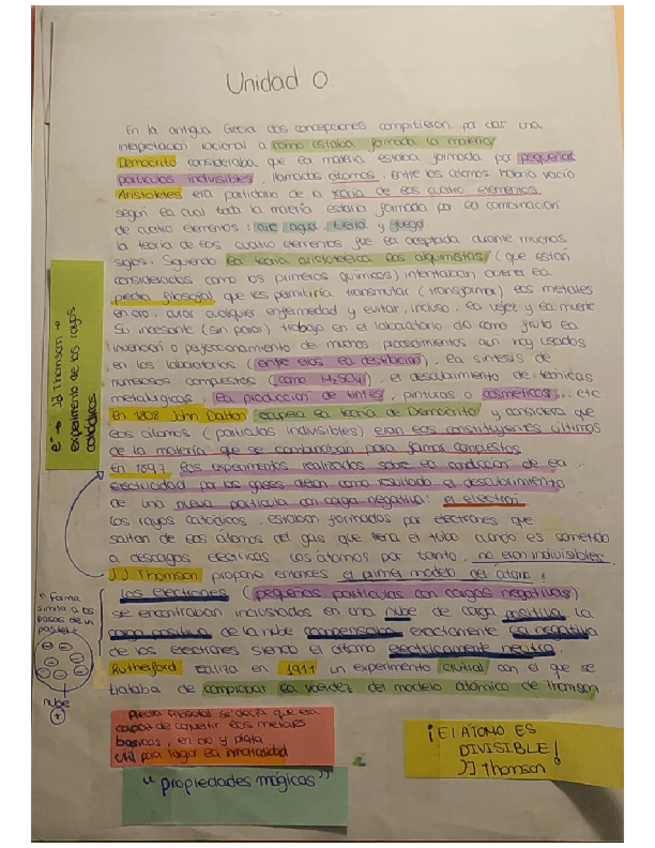 Unidad 0
En la antigua Grecia dos concepciones compitieron por dar una
interpretación racional a como estaba formada la materia
Demócrito consideraba que la materia estaba formada por pequeñas
partículas indivisibles, llamadas átomos. Entre los átomos habría vacío
Aristóteles era partidario de la teoría de los cuatro elementos,
según la cual toda la materia estaría formada por la combinación
de cuatro elementos: aire, agua, tierra y fuego
la teoría de los cuatro elementos fue la aceptada durante muchos
siglos. Siguiendo la teoría aristotélica los alquimistas (que están
considerados como los primeros químicos) intentaban obtener la
piedra filosofal que les permitiría transmutar (transformar) los metales
en oro, curar cualquier enfermedad y evitar, incluso, la vejez y la muerte
Su incesante (sin parar) trabajo en el laboratorio dio como fruto la
invención o perfeccionamiento de muchos procedimientos aun hoy usados
en los laboratorios (entre ellos la destilación), la síntesis de
numerosos compuestos (como H₂SO₄), el descubrimiento de técnicas
metalúrgicas, la producción de tintes, pinturas o cosméticos... etc
En 1808 John Dalton recupera la teoría de Demócrito y considera que
los átomos (partículas indivisibles) eran los constituyentes últimos
de la materia que se combinaban para formar compuestos
En 1897 los experimentos realizados sobre la conducción de la
electricidad por los gases dieron como resultado el descubrimiento
de una nueva partícula con carga negativa: el electrón.
Los rayos catódicos, estaban formados por electrones que
saltan de los átomos del gas que llena el tubo cuando es sometido
a descargas eléctricas. Los átomos por tanto, no eran indivisibles.
JJ Thomson propone entonces el primer modelo del átomo:
Los electrones (pequeñas partículas con cargas negativas)
se encontraban incrustados en una nube de carga positiva. La
carga positiva de la nube compensaba exactamente la negativa
de los electrones siendo el átomo eléctricamente neutro.
Rutherford realiza en 1911 un experimento crucial con el que se
trataba de comprobar la validez del modelo atómico de Thomson
e⁻ → JJ Thomson →
experimento de los rayos
catódicos.
" forma
similar a las
pasas de un
pastel "
nube
+
Piedra filosofal se decía que era
capaz de convertir los metales
básicos, en oro y plata
útil para lograr la inmortalidad
" propiedades mágicas "
¡El ATOMO ES
DIVISIBLE!
JJ Thomson